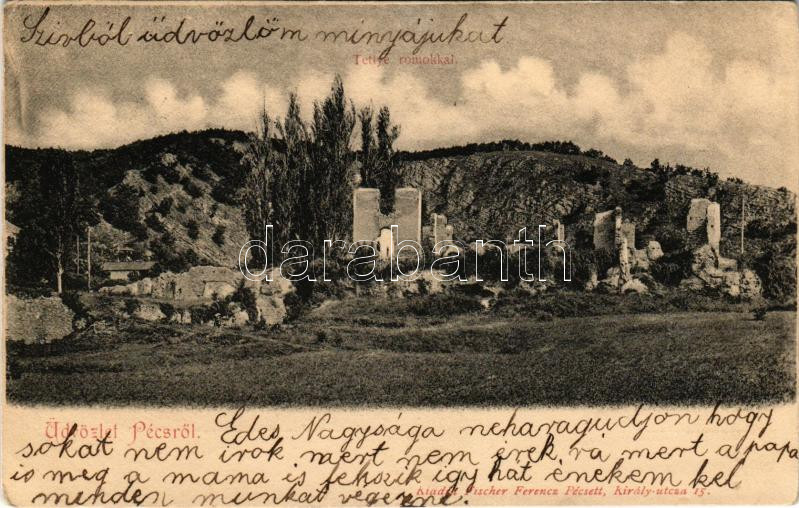 Szivból üdvözlöm minyájukat
Tettye romokkal.
darabanth
Üdvözlet Pécsről.
Edes Nagysága neharagudjon hogy
sokat nem irok mert nem érek rá mert a papa
is meg a mama is fekszik igy hát énekem kel
menden munkat vegezne.
Kiadja Fischer Ferencz Pécsett, Király-utcza 15.